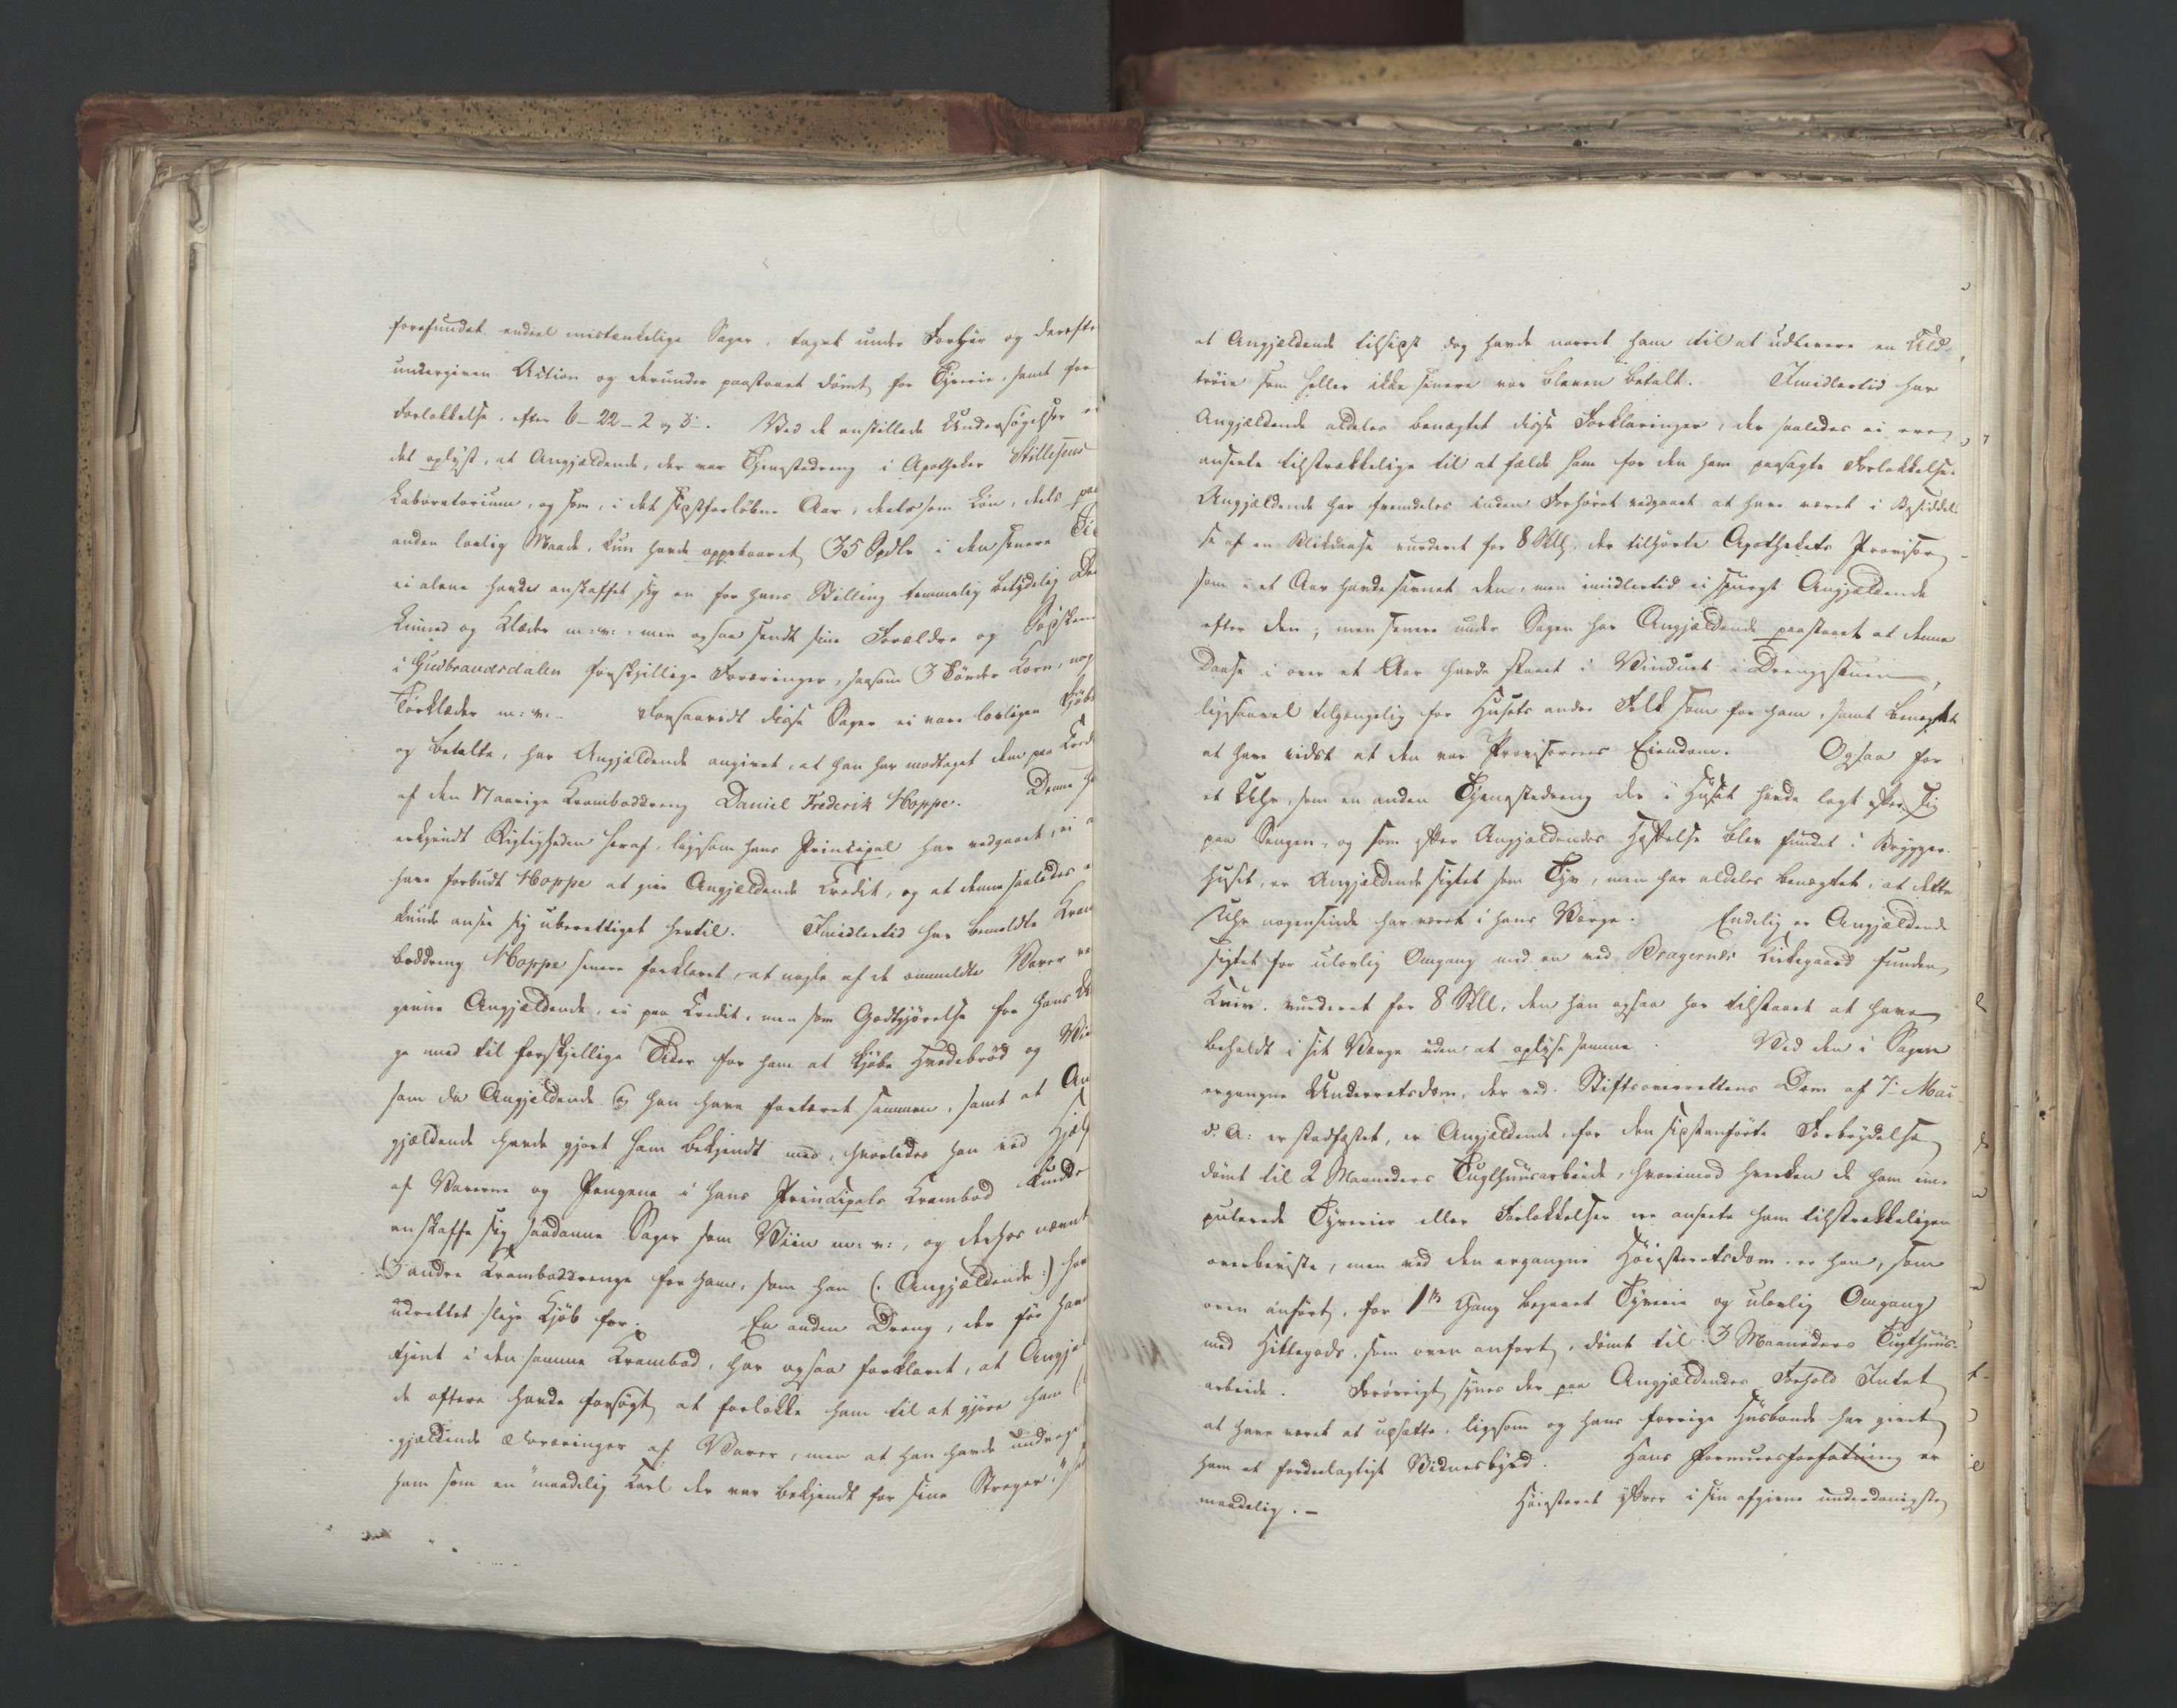 forefundet endeel mistænkelige Sager, taget under Forhør og derefte
undergiven Action og derunder paastaaet dømt for Tyverie, samt for
Forlokkelse efter 6-22-2 og 3. Ved de anstillede Undersøgelser er
det oplyst, at Angjældende, der var Tjenestedreng i Apotheker Stillesens
Laboratorium, og som, i det sidstforløbne Aar, deels som Løn, deels paa
anden lovlig Maade, kun havde oppebaaret 35 Spdlr i den senere Tid
ei alene havde anskaffet sig en for hans Stilling temmelig betydelig Deel
Linned og Klæder m:v: men ogsaa sendt sine Forældre og Søskende
i Gudbrandsdalen forskjellige Foræringer, saasom 3 Tønder Korn, nog
Tørklæder m:v: Forsaavidt disse Sager ei vare lovligen kjøbt
og betalte, har Angjældende angivet, at han har modtaget dem paa Kred
af den 17 aarige Kramboddreng Daniel Frederik Hoppe. Denne h
erkjendt Rigtigheden heraf, ligesom hans Principal har vedgaaet, ei a
have forbudt Hoppe at give Angjældende Credit, og at denne saaledes e
kunde ansee sig uberettiget hertil. Imidlertid har bemeldte Kram
boddreng Hoppe senere forklaret, at nogle af de ommeldte Varer va
givne Angjældende, ei paa Credit, men som Godtgjørelse for hans U
ge med til forskjellige Tider for ham at kjøbe Hvedebrød og Vii
som da Angjældende og han have fortæret sammen, samt at An
gjældende havde gjort ham bekjendt med, hvorledes han ved Hjælp
af Varerne og Pengene i hans Principals Krambod kunde
anskaffe sig saadanne Sager som Viin m:v:, og derhos nævnt
3 andre Kramboddrenge for ham, som han (: Angjældende :) har
udrettet slige Kjøb for. En anden Dreng, der før hav
tjent i den samme Krambod, har ogsaa forklaret, at Angjæl
de oftere havde forsøgt at forlokke ham til at gjøre ham
gjældende Foræringer af Varer, men at han havde undveget
ham som en "maadelig Karl der var bekjendt for sine Streger",
at Angjældende tilsidst dog havde narret ham til at udlevere en Uld-
trøie som heller ikke senere var bleven betalt. Imidlertid har
Angjældende aldeles benægtet disse Forklaringer, der saaledes ei ere
anseete tilstrækkelige til at fælde ham for den ham paasagte Forlokkelse.
Angjældende har fremdeles inden Forhøret vedgaaet at have været i Besiddel-
se af en Blikdaase vurderet for 8 Sk, der tilhørte Apothekets Provisor
som i et Aar havde savnet den, men imidlertid ei spurgt Angjældende
efter den; men senere under Sagen har Angjældende paastaaet at denne
Daase i over et Aar havde staaet i Vinduet i Drengestuen,
ligesaavel tilgængelig for Husets andre Folk som for ham, samt benægtet
at have vidst at den var Provisorens Eiendom. Ogsaa for
et Uhr, som en anden Tjenestedreng der i Huset havde lagt efter sig
paa Sengen, og som efter Angjældendes Hæftelse blev fundet i Brygger-
huset, er Angjældende sigtet som Tyv, men har aldeles benægtet, at dette
Uhr nogensinde har været i hans Værge. Endelig er Angjældende
sigtet for ulovlig Omgang med en ved Bragernes Kirkegaard funden
Kniv, vurderet for 8 Skll, den han ogsaa har tilstaaet at have
beholdt i sit Værge uden at oplyse samme. Ved den i Sagen
ergangne Underretsdom, der ved Stiftsoverrettens Dom af 7 Mai
d. A: er stadfæstet, er Angjældende, for den sidstanførte Forbrydelse
dømt til 2 Maaneders Tugthuusarbeide, hvorimod hverken de ham im-
puterede Tyverier eller Forlokkelser ere anseete ham tilstrækkeligen
overbeviste, men ved den ergangne Høiesteretsdom er han, som
oven anført, for 1ste Gang begaaet Tyverie og ulovlig Omgang
med Hittegods, som oven anført, dømt til 3 Maaneders Tugthuus-
arbeide. Forøvrigt synes der paa Angjældendes Forhold Intet
at have været at udsætte, ligesom og hans forrige Huusbonde har givet
ham et fordeelagtigt Vidnesbyrd. Hans Formuesforfatning er
maadelig. - Høiesteret ytrer i sin afgivne underdanigste